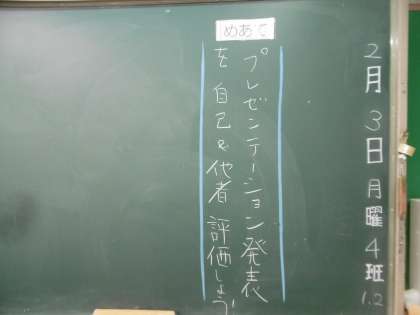 2月3日月曜4班
1.2
めあて
プレゼンテーション発表
を自己&他者評価しよう